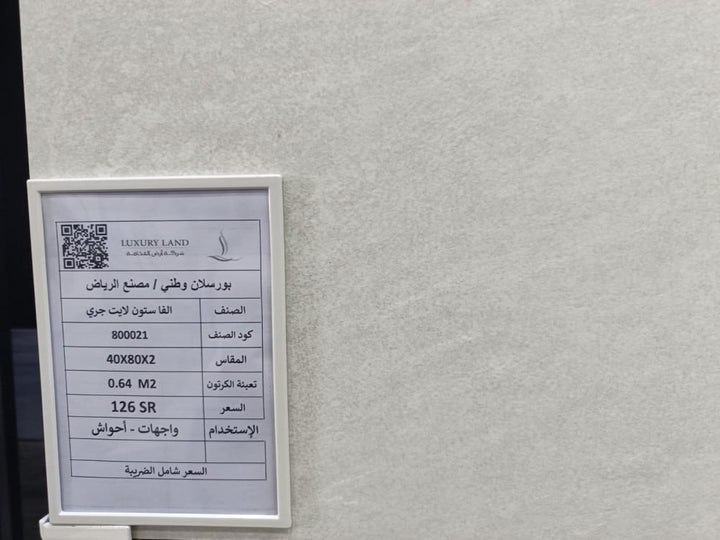 LUXURY LAND
شركة أرض الفخامة
بورسلان وطني / مصنع الرياض
الصنف الفا ستون لايت جري
كود الصنف 800021
المقاس 40X80X2
تعبئة الكرتون 0.64 M2
السعر 126 SR
الإستخدام واجهات - أحواش
السعر شامل الضريبة